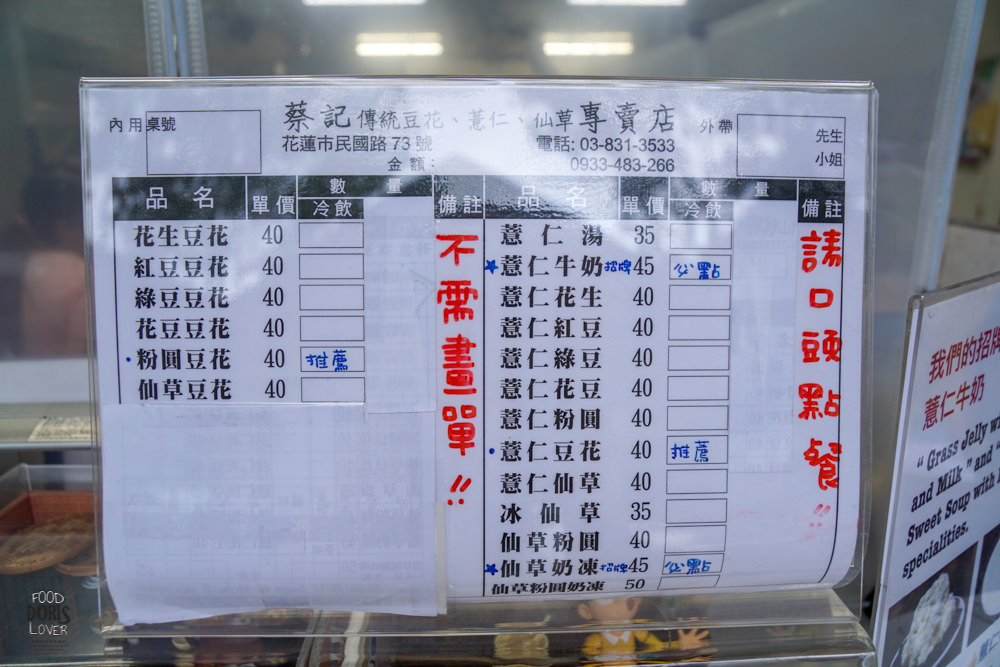 蔡記傳統豆花、薏仁、仙草專賣店
內用桌號
外帶
先生
小姐
花蓮市民國路 73 號
電話: 03-831-3533
金額:
0933-483-266
品名 單價 數量 備註
冷飲
花生豆花 40
紅豆豆花 40
綠豆豆花 40
花豆豆花 40
·粉圓豆花 40 推薦
仙草豆花 40
不需畫單!!
品名 單價 數量 備註
冷飲
薏仁湯 35
★薏仁牛奶招牌45 必點
薏仁花生 40
薏仁紅豆 40
薏仁綠豆 40
薏仁花豆 40
薏仁粉圓 40
·薏仁豆花 40 推薦
薏仁仙草 40
冰仙草 35
仙草粉圓 40
★仙草奶凍招牌45 必點
仙草粉圓奶凍 50
請口頭點餐!!
我們的招牌
薏仁牛奶
"Grass Jelly
and Milk" and
Sweet Soup with
specialities.
FOOD
DORIS
LOVER